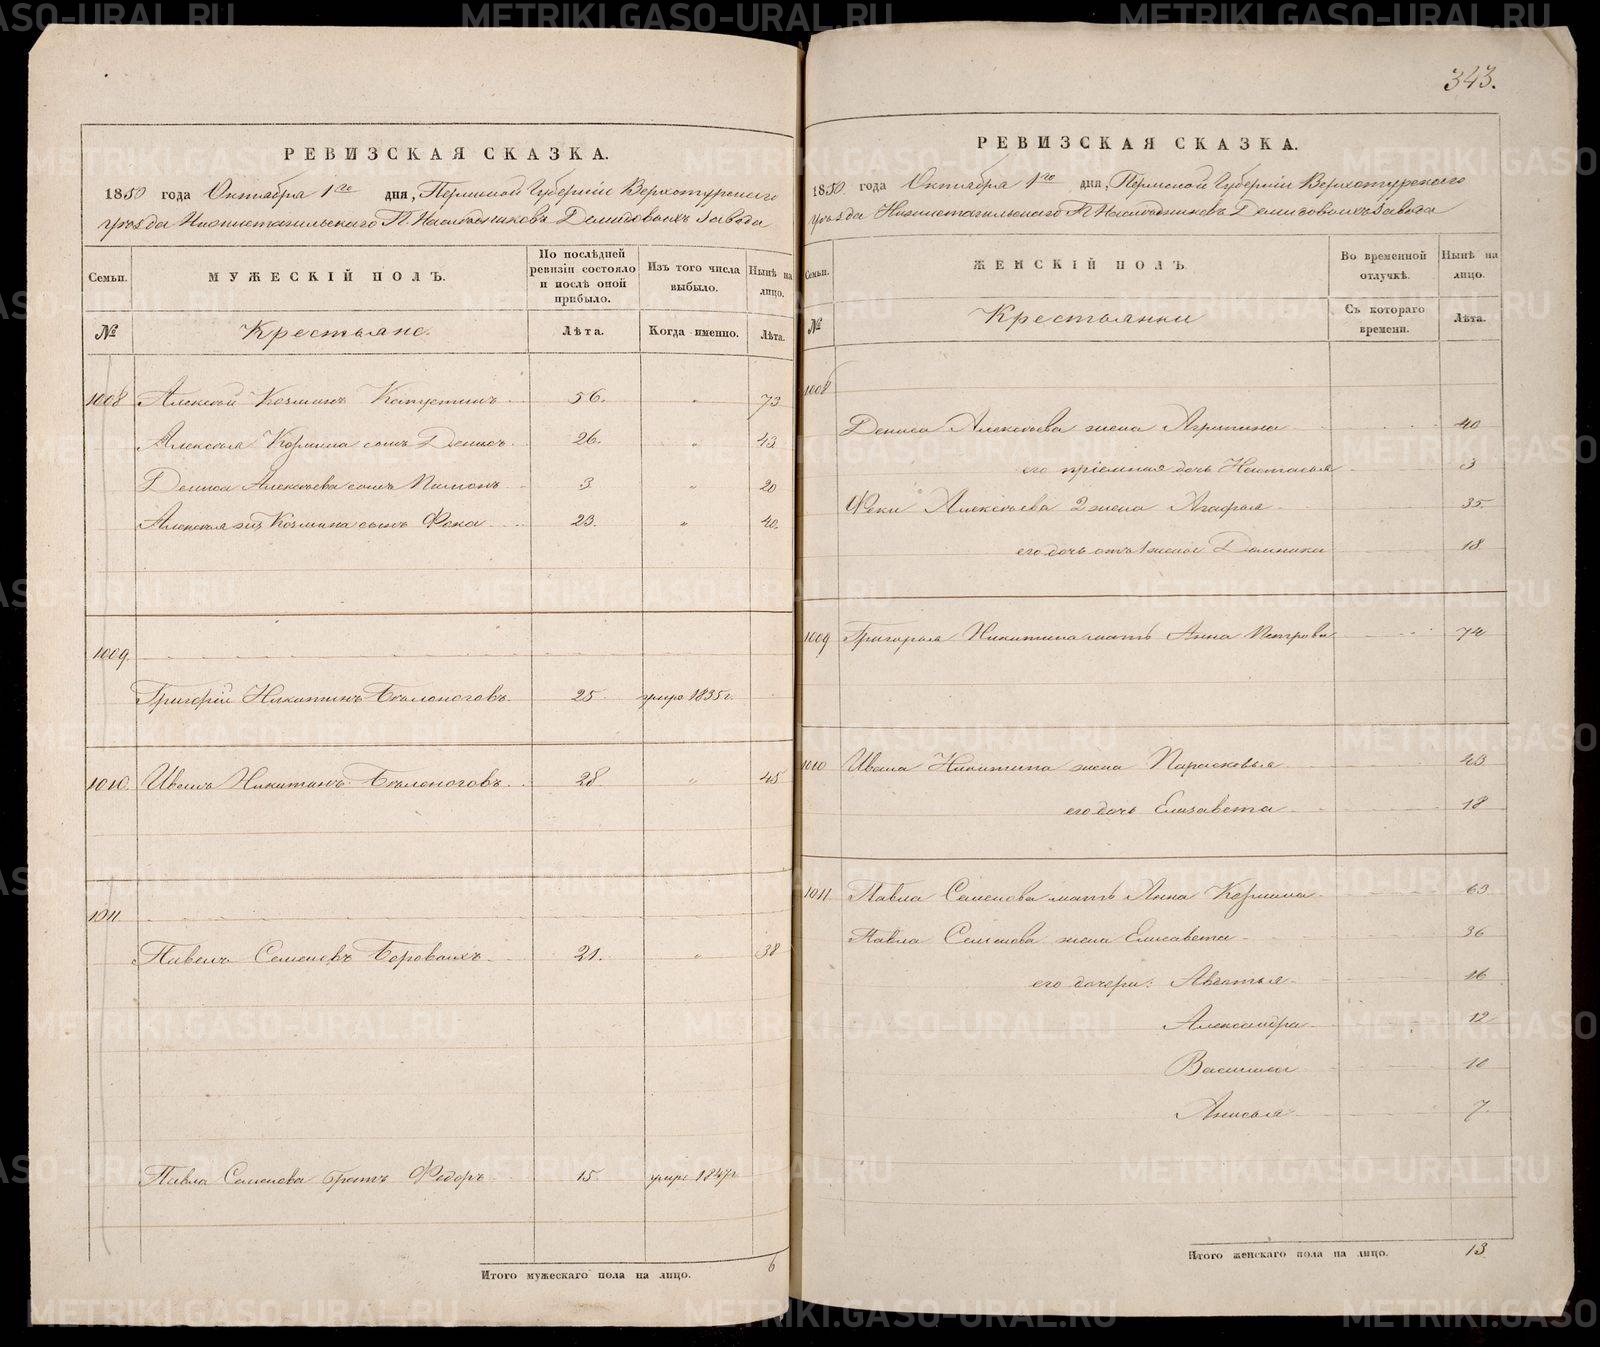 РЕВИЗСКАЯ СКАЗКА.
1850 года Октября 1го дня, Пермской Губерніи Верхотурскаго
уѣзда Нижнетагильскаго Г. Наслѣдниковъ Демидовыхъ завода
Семьи. МУЖЕСКІЙ ПОЛЪ. По послѣдней ревизіи состояло и послѣ оной прибыло. Изъ того числа выбыло. Нынѣ на лицо.
№ Крестьяне. Лѣта. Когда именно. Лѣта.
1008 Алексѣй Козминъ Капустинъ 56. " 73
Алексѣя Козмина сынъ Денисъ 26. " 43
Дениса Алексѣева сынъ Пименъ 3 " 20
Алексѣя Козмина сынъ Фока 23. " 40.
1009.
Григорій Никитинъ Бѣлоноговъ. 25 умре 1835г.
1010. Иванъ Никитинъ Бѣлоноговъ. 28. " 45
1011
Павелъ Семеновъ Боровыхъ 21. " 38
Павла Семенова братъ Федоръ 15. умре 1847г
Итого мужескаго пола на лицо. 6
343.
РЕВИЗСКАЯ СКАЗКА.
1850. года Октября 1го дня, Пермской Губерніи Верхотурскаго
уѣзда Нижнетагильскаго Г. Наслѣдниковъ Демидовыхъ завода
Семьи. ЖЕНСКІЙ ПОЛЪ. Во временной отлучкѣ. Нынѣ на лицо.
№ Крестьянки Съ котораго времени. Лѣта.
1008
Дениса Алексѣева жена Агрипина 40
его пріемная дочь Настасья 3
Фоки Алексѣева 2 жена Агафья 35.
его дочь отъ 1 жены Домника 18
1009 Григорья Никитина мать Анна Петрова 74
1010 Ивана Никитина жена Парасковья 43
его дочь Елизавета 18
1011. Павла Семенова мать Анна Козмина 63
Павла Семенова жена Елисавета 36
его дочери: Авдотья 16
Александра 12
Василиса 10
Анисья 7.
Итого женскаго пола на лицо. 13
METRIKI.GASO-URAL.RU